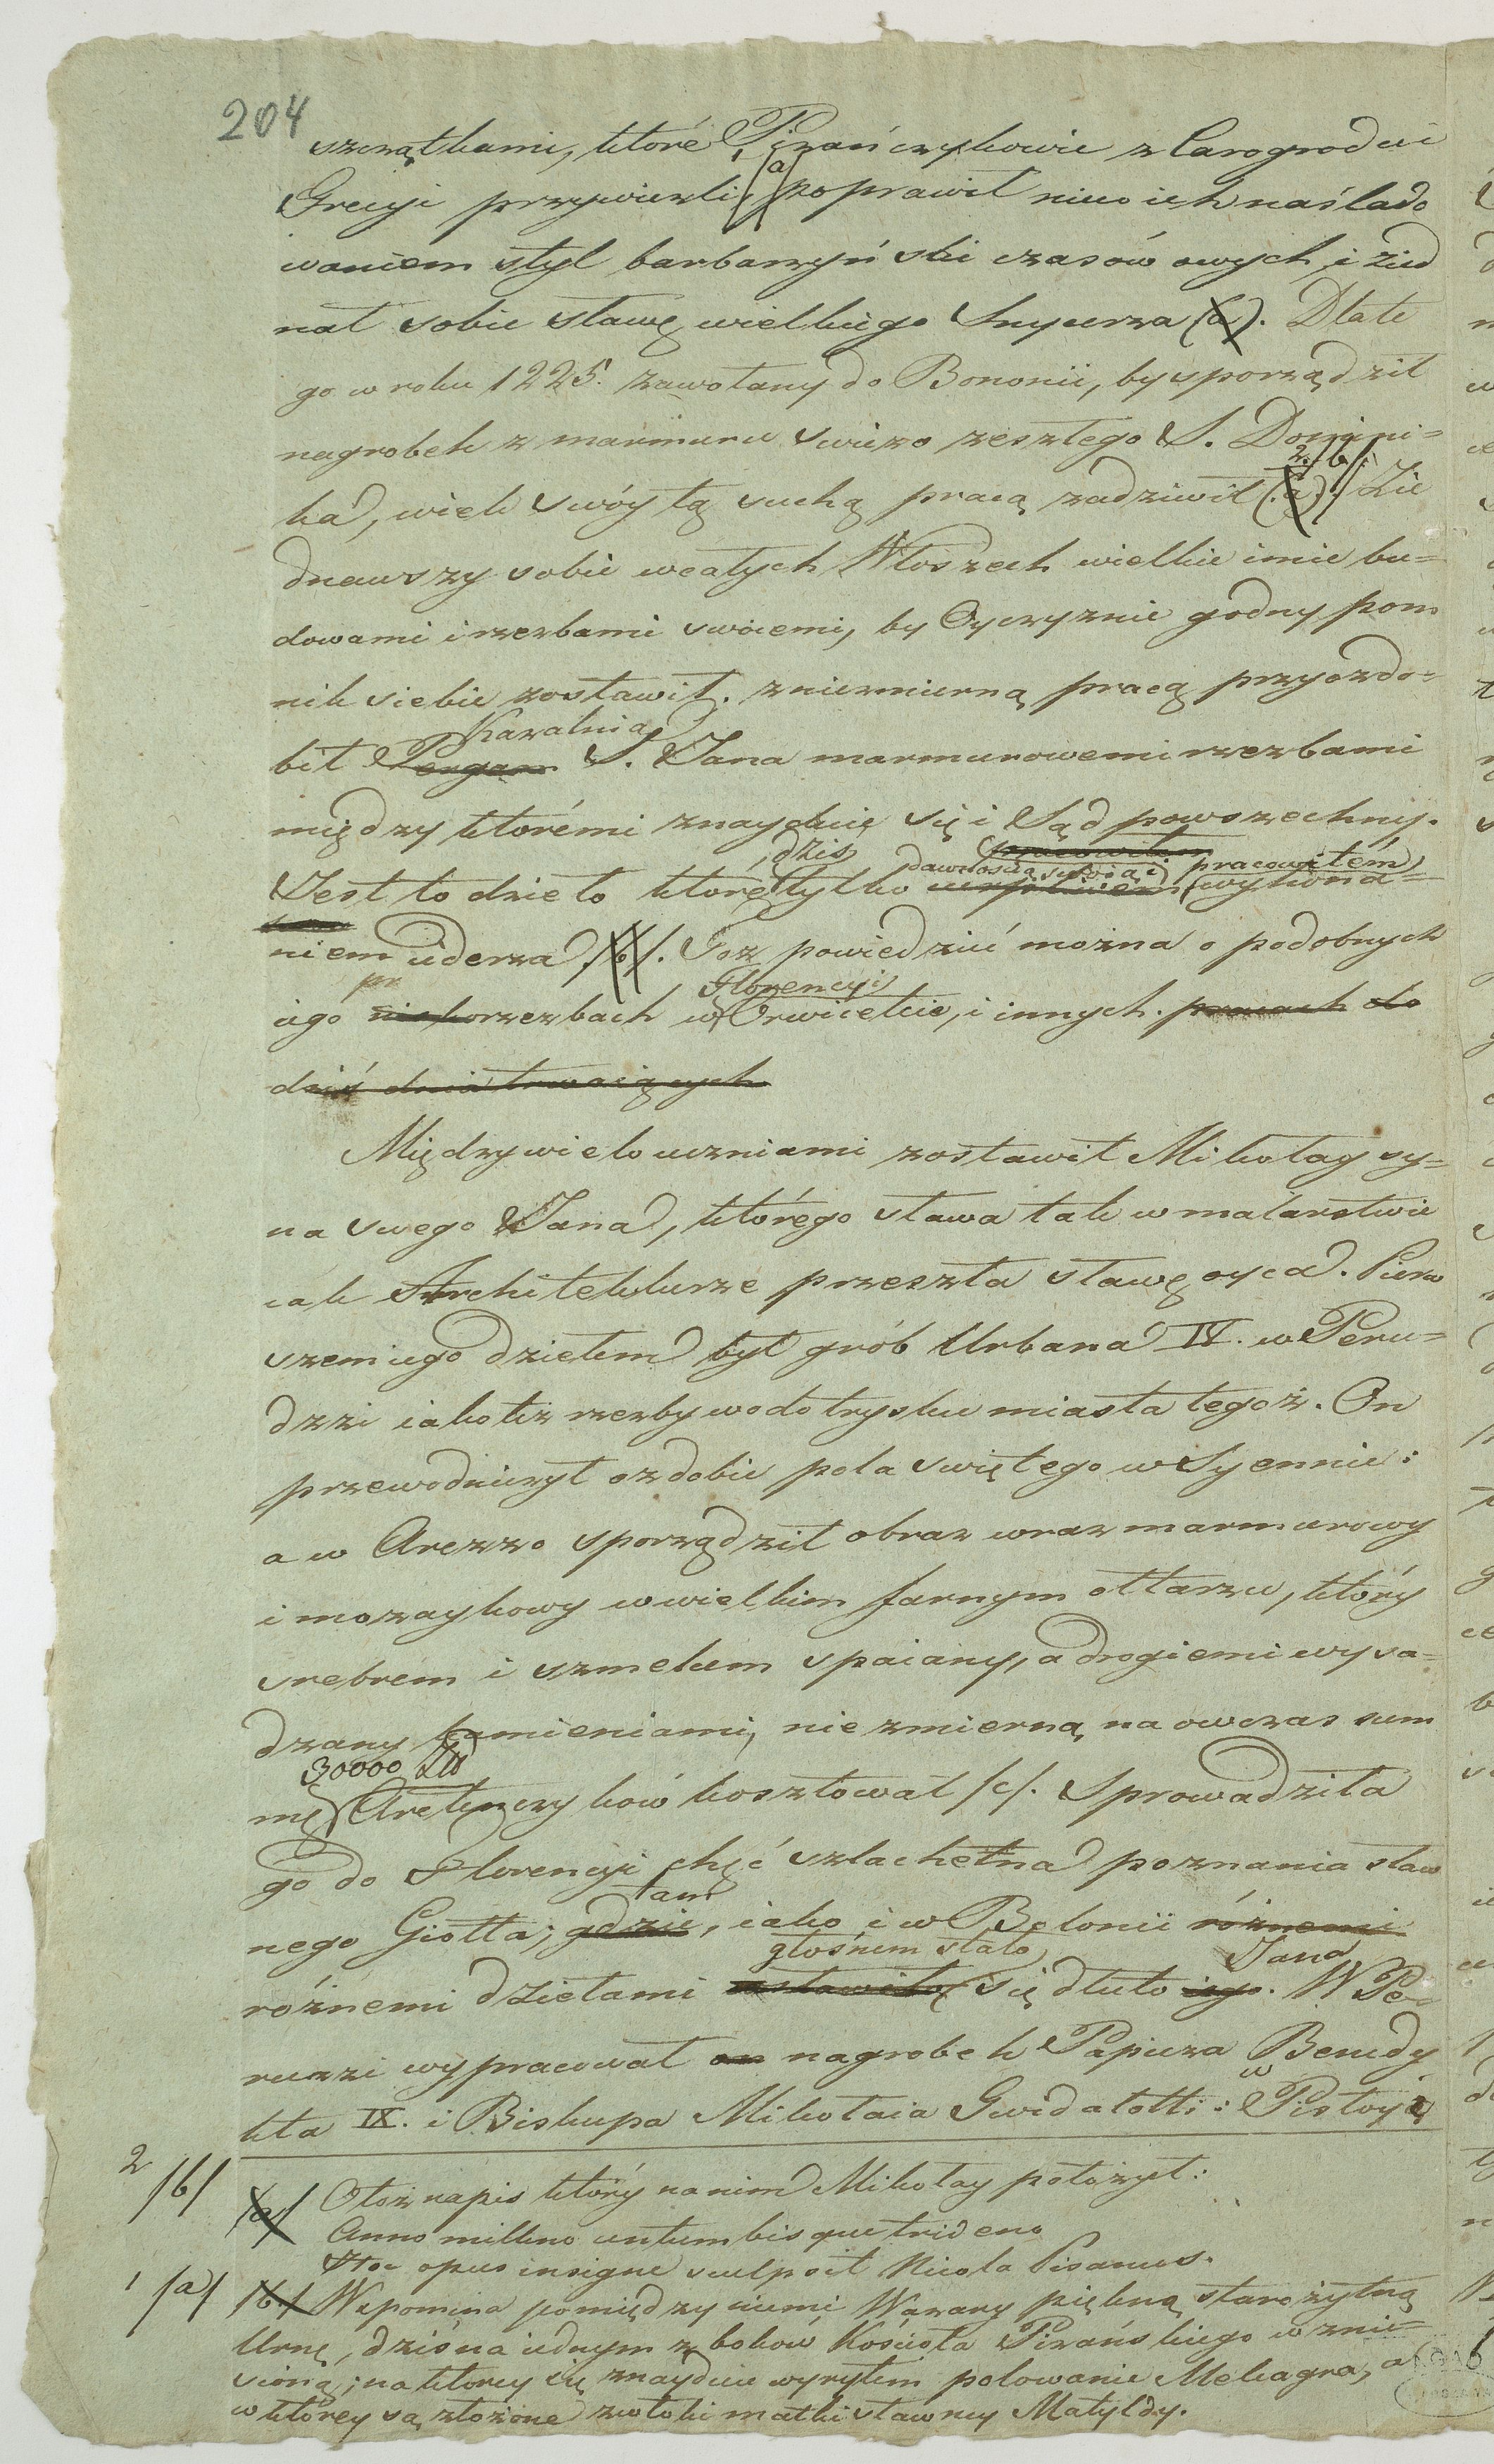 204
szczątkami, które Pizańczykowie z Carogrodu i
Grecyi przywieźli, /a/ poprawił nieco ich naślado
waniem styl barbarzyński czasów owych, i zied
nał sobie sławę wielkiego Snycerza (a). Dlate
go w roku 1225. zawołany do Bononii, by sporządził
nagrobek z marmuru swieżo zeszłego S. Domini=
ka, wiek swóy tą suchą pracą zadziwił (a) 2. /b/. Zie
dnawszy sobie w całych Włoszech wielkie imie bu=
dowami i rzezbami swoiemi, by Oyczyznie godny pom
nik siebie zostawił. z niezmierną pracą przyozdo=
Kazalnią
bił Pergam S. Jana marmurowemi rzezbami
między którémi znayduie się i Sąd powszechny.
dziś dawnością swoią i pracowitém
Jest to dzieło które tylko wykona=
niem uderza /b/. Toż powiedzieć można o podobnych
Florencyi
iego rzezbach w Orwiecie, i innych. pracach do
dziś dnia trwaiących
Między wielo uczniami zostawił Mikołay sy=
na swego Jana, którégo sława tak w malarstwie
iak Architekturze przeszła sławę oyca. Pierw
szem iego dziełem był grób Urbana IV. w Peru=
dzzi iako też rzezby wodotrysku miasta tegoż. On
przewodniczył ozdobie pola swiętego w Syennie:
a w Arezzo sporządził obraz wraz marmurowy
i mozaykowy w wielkim farnym ołtarzu, który
srebrem i szmelcem spaiany, a drogiemi wysa=
dzany kamieniami, niezmierną na owczas sum
30000 Złł
mę Aretynczyków kosztował /c/. Sprowadziła
go do Florencyi chęć szlachetna poznania sław
tam
nego Giotta; gdzie, iako i w Bolonii róźnemi
głośnem stało Jana
róźnemi dziełami wsławiło się dłuto iego. W Pe
ruzzi wypracował on nagrobek Papieża Benedy
w
kta IX. i Biskupa Mikołaia Gwidalotti: Pistoyi
2 /b/ /a/ Otoż napis który na nim Mikołay położył:
Anno milleno centum bis que trideno
Hoc opus insigne sculpsit Nicola Pisanus.
1 /a/ /b/ Wspomina pomiędzy niemi Wazary piękną starożytną
Urnę, dziś na iednym z boków Kościoła Pizańskiego wznie=
sioną; na którey się znayduie wyrytem polowanie Meleagra, a
w którey są złożone zwłoki matki sławney Matyldy.